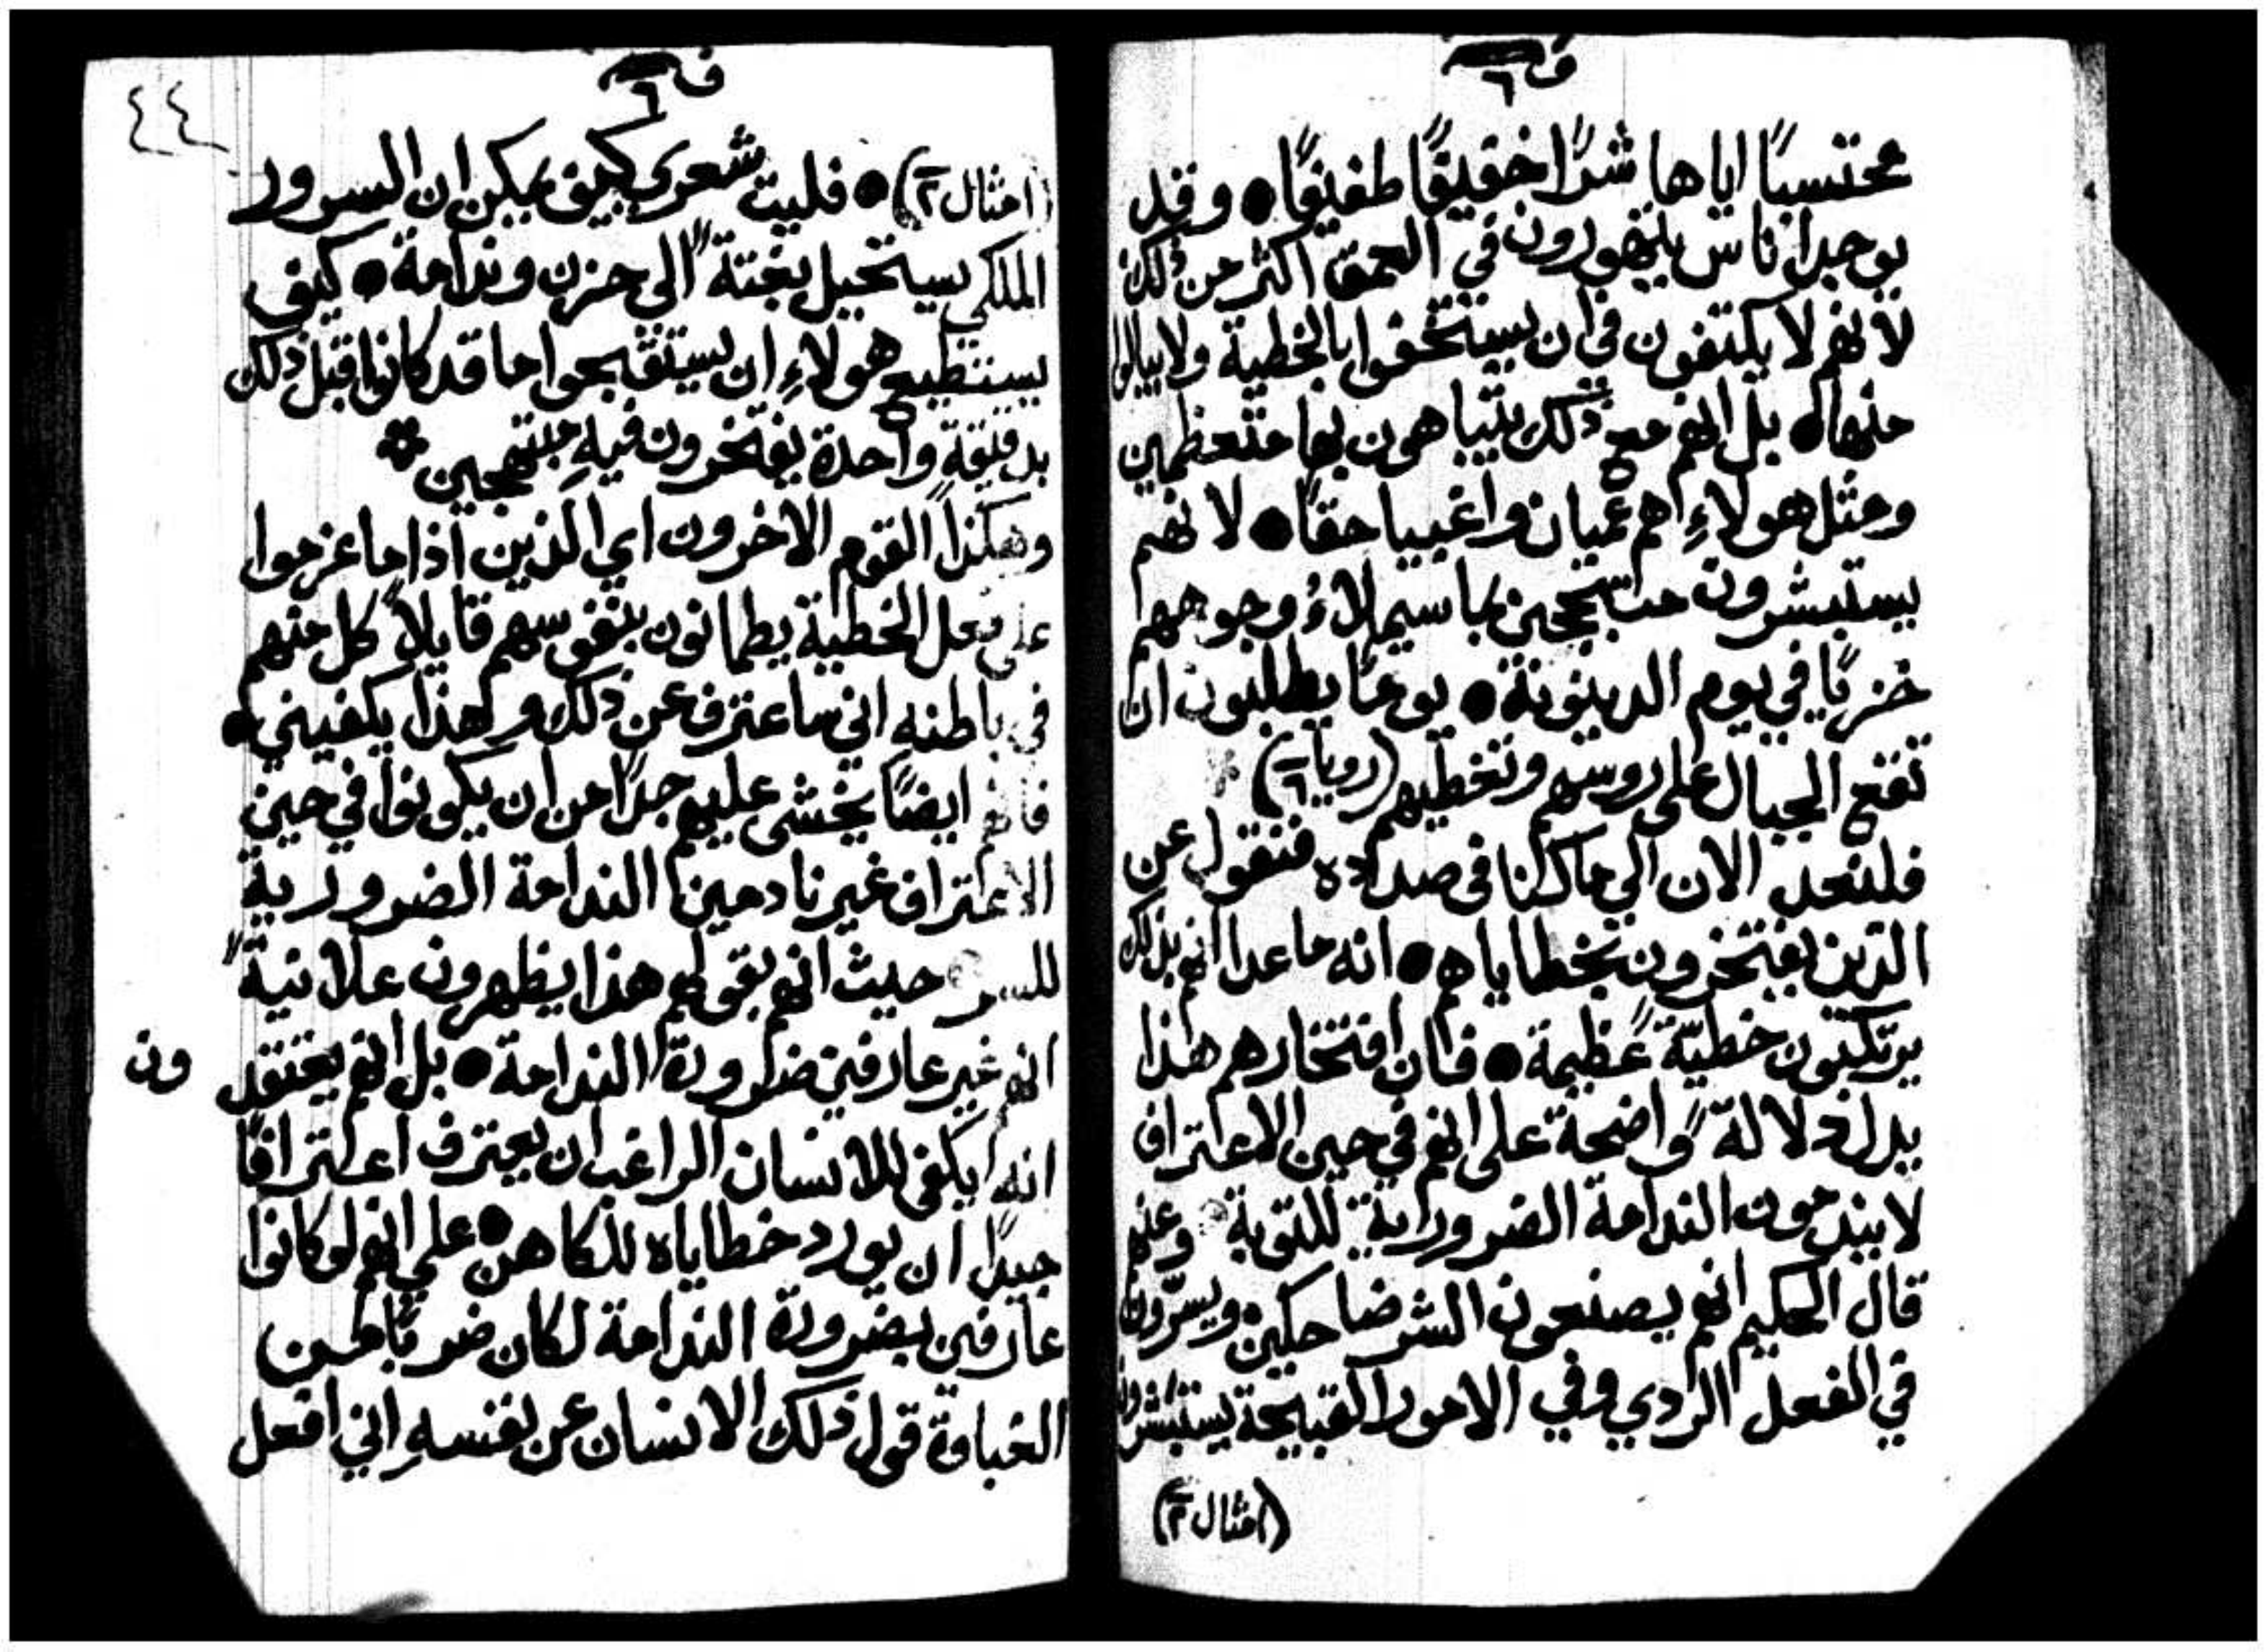 ف ٦
محتسبًا اياها شرًا خفيفًا طفيفًا ● وقد
يوجد اناس يتهورون في العمق اكثر من ذلك
لانهم لا يكتفون في ان يستخفوا بالخطية ولا يبالوا
منها ● بل انهم مع ذلك يتباهون بها متعظمين
ومثل هولاءِ هم عميان واغبيا حقًا ● لانهم
يستبشرون متبجحين بما سيملاءُ وجوههم
خزيًا في يوم الدينونة ● يومًا يطلبون ان
تقع الجبال على روسهم وتغطيهم (رويا ٦)
فلنعد الان الي ما كنا في صداده فنقول عن
الذين يفتخرون بخطاياهم ● انه ما عدا انهم بذلك
يرتكبون خطيّةً عظيمة ● فان افتخارهم هذا
يدل دلالةً واضحة على انهم في حين الاعتراف
لا يندمون الندامة الضرورية للتوبة وعنهم
قال الحكيم انهم يصنعون الشر ضاحكين ويسرّون
في الفعل الردي وفي الامور القبيحة يستبشرون
(امثال ٢)
ف ٦
٤٤
(امثال ٢) ● فليت شعري كيف يمكن ان السرور
الملكي يستحيل بغتةً الى حزن وندامة ● كيف
يستطيع هولاءِ ان يستقبحوا ما قد كانوا قبل ذلك
بدقيقة واحدة يفتخرون فيهِ مبتهجين
وهكذا القوم الاخرون اي الذين اذا ما عزموا
على فعل الخطية يطمانون بنفوسهم قايلاً كل منهم
في باطنهِ اني ساعترف عن ذلك وهذا يكفيني ●
فانهم ايضًا يخشى عليهم جدًا من ان يكونوا في حين
الاعتراف غير نادمين الندامة الضرورية
للسر حيث انهم بقولهم هذا يظهرون علانيةً
انهم غير عارفين ضرورة الندامة ● بل انهم يعتقد ون
انه يكفي للانسان الراغب ان يعترف اعترافًا
جيدًا ان يورد خطاياه للكاهن ● على انهم لو كانوا
عارفين بضرورة الندامة لكان ضربًا من
الغباوة قول ذلك الانسان عن نفسهِ اني افعل